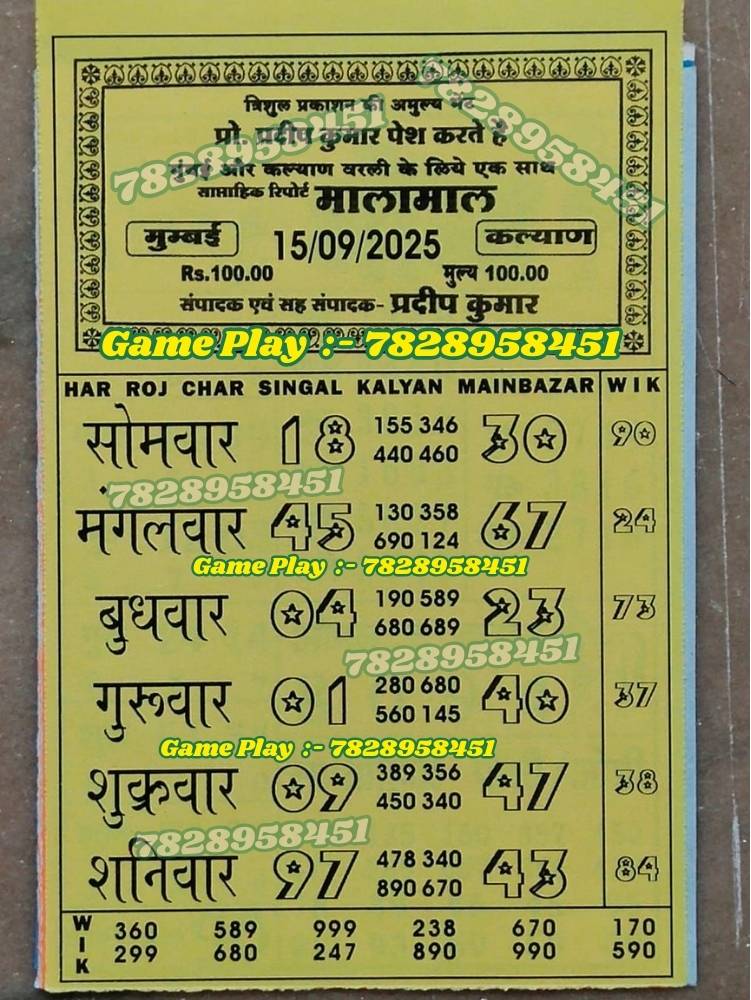 त्रिशुल प्रकाशन की अमुल्य भेंट
प्रो. प्रदीप कुमार पेश करते है
मुंबई और कल्याण वरली के लिये एक साथ
साप्ताहिक रिपोर्ट मालामाल
मुम्बई 15/09/2025 कल्याण
Rs.100.00 मुल्य 100.00
संपादक एवं सह संपादक- प्रदीप कुमार
7828958451
7828958451
Game Play :- 7828958451
HAR ROJ CHAR SINGAL KALYAN MAINBAZAR WIK
सोमवार 18 155 346 30 90
440 460
7828958451
मंगलवार 45 130 358 67 24
690 124
Game Play :- 7828958451
बुधवार 04 190 589 23 73
680 689
7828958451
गुरूवार 01 280 680 40 37
560 145
Game Play :- 7828958451
शुक्रवार 09 389 356 47 38
450 340
7828958451
शनिवार 97 478 340 43 84
890 670
WIK 360 589 999 238 670 170
299 680 247 890 990 590